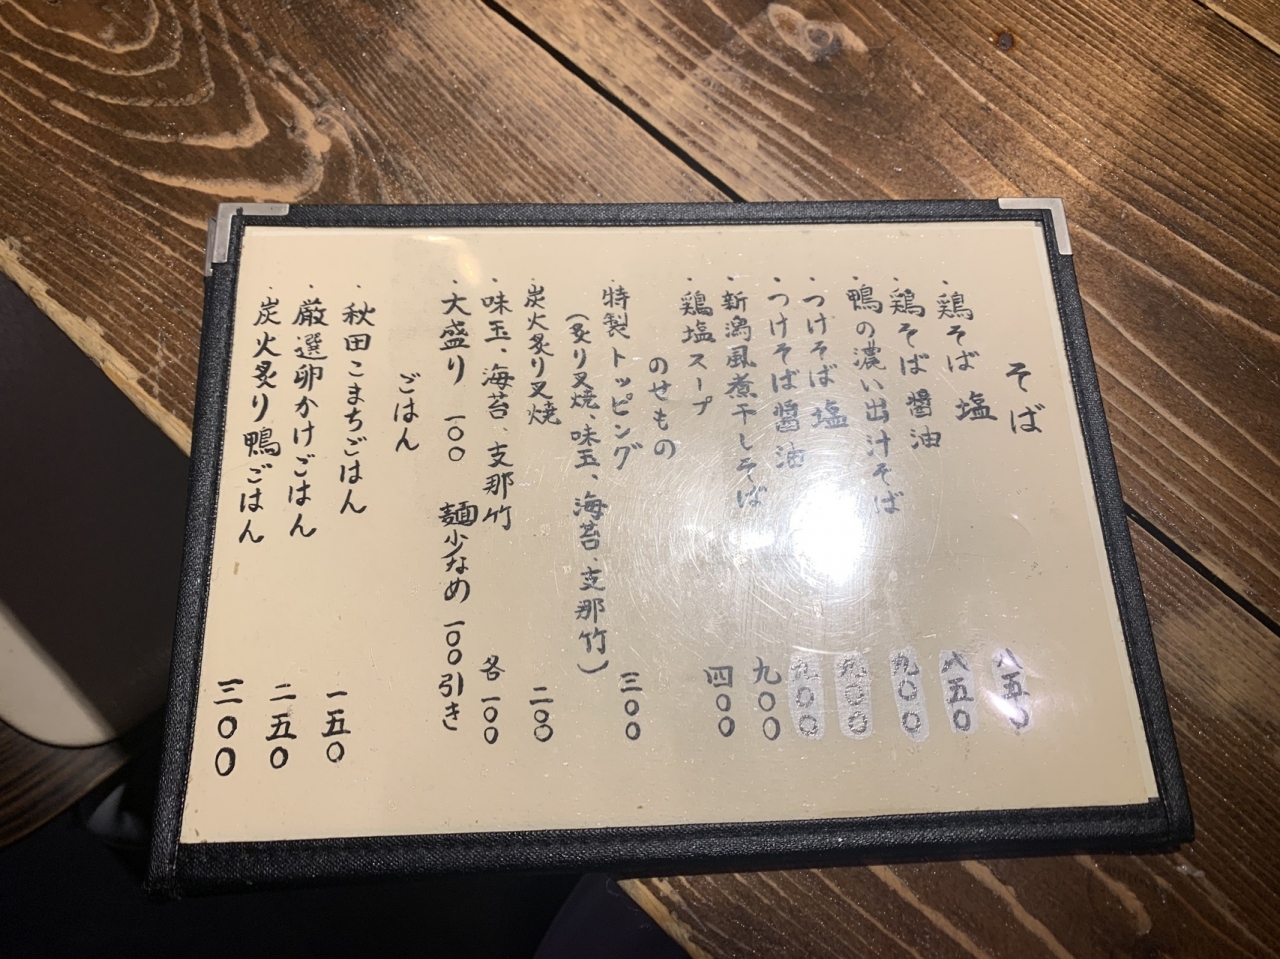 そば
・鶏そば 塩 八五〇
・鶏そば 醤油 八五〇
・鴨の濃い出汁そば 九〇〇
・つけそば 塩 九〇〇
・つけそば 醤油 九〇〇
・新潟風煮干しそば 九〇〇
・鶏塩スープ 四〇〇
のせもの
特製トッピング 三〇〇
(炙り叉焼、味玉、海苔、支那竹)
・炭火炙り叉焼 二〇〇
・味玉、海苔、支那竹 各一〇〇
・大盛り 一〇〇 麺少なめ 一〇〇引き
ごはん
・秋田こまちごはん 一五〇
・厳選卵かけごはん 二五〇
・炭火炙り鴨ごはん 三〇〇